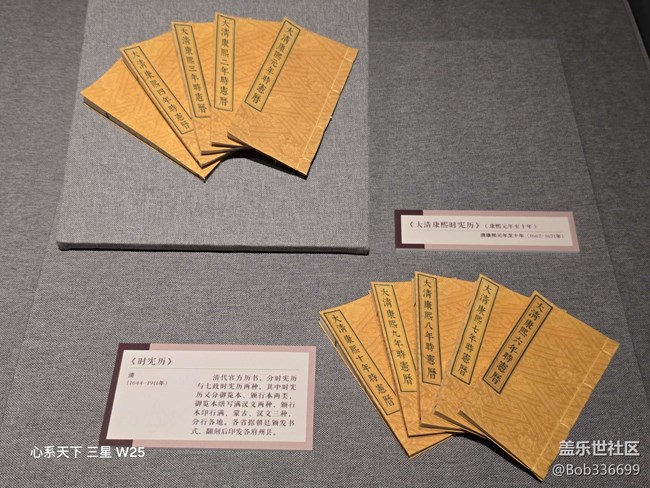 大清康熙四年時憲曆
大清康熙三年時憲曆
大清康熙二年時憲曆
大清康熙元年時憲曆
《大清康熙时宪历》（康熙元年至十年）
清康熙元年至十年（1662-1671年）
大清康熙十年時憲曆
大清康熙九年時憲曆
大清康熙八年時憲曆
大清康熙七年時憲曆
大清康熙六年時憲曆
《时宪历》
清
（1644-1911年）
清代官方历书，分时宪历
与七政时宪历两种。其中时宪
历又分御览本、颁行本两类，
御览本缮写满汉文两种，颁行
本印行满、蒙古、汉文三种，
分行各地。各省据朝廷颁发书
式，翻刻后印发各府州县。
心系天下 三星 W25
盖乐世社区
@Bob336699